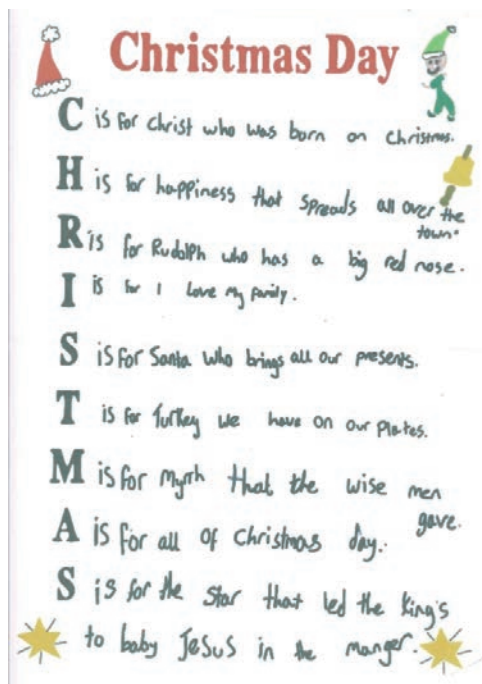 Christmas Day
C is for Christ who was born on Christmas.
H is for happiness that spreads all over the
town.
R is for Rudolph who has a big red nose.
I is for I Love My family.
S is for Santa who brings all our presents.
T is for Turkey we have on our plates.
M is for Myrrh that the wise men
gave.
A is for all of Christmas day.
S is for the star that led the king's
to baby Jesus in the manger.